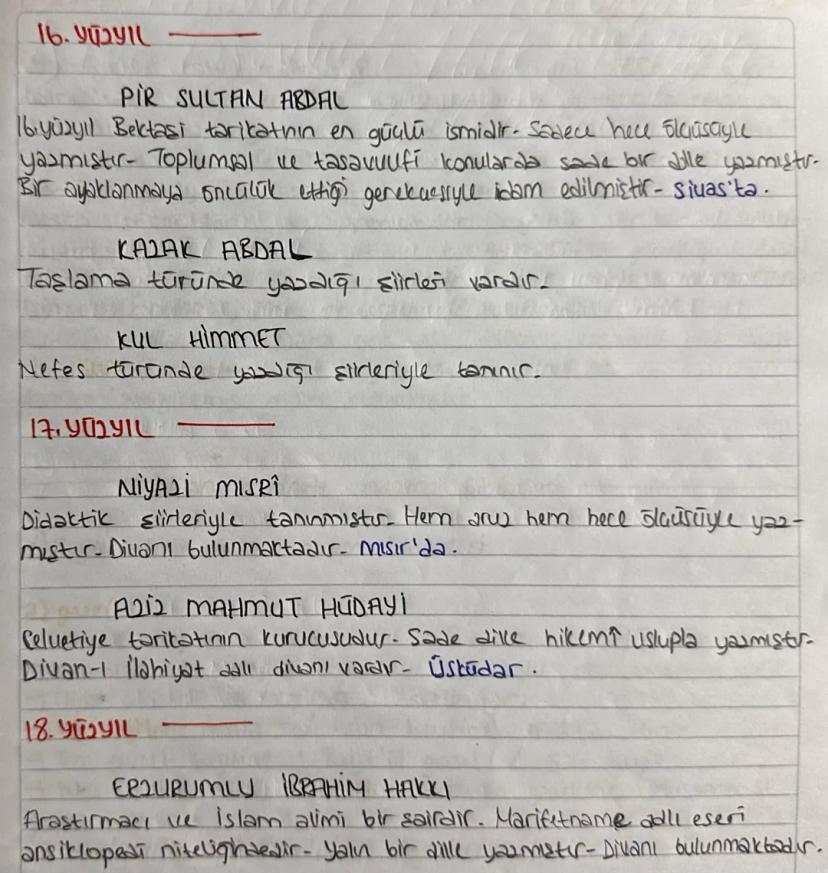 16. YÜZYIL
PİR SULTAN ABDAL
16.yüzyıl Bektaşi tarikatının en güçlü ismidir. Sadece hece ölçüsüyle
yazmıştır. Toplumsal ve tasavvufi konularda sade bir dille yazmıştır.
Bir ayaklanmaya öncülük ettiği gerekçesiyle idam edilmiştir. Sivas'ta.
KAZAK ABDAL
Taşlama türünde yazdığı şiirleri vardır.
KUL HİMMET
Nefes türünde yazdığı şiirleriyle tanınır.
17. YÜZYIL
NİYAZİ MISRÎ
Didaktik şiirleriyle tanınmıştır. Hem aruz hem hece ölçüsüyle yaz-
mıştır. Divanı bulunmaktadır. Mısır'da.
AZİZ MAHMUT HÜDAYİ
Celvetiye tarikatının kurucusudur. Sade dille hikemî uslupla yazmıştır.
Divan-ı İlahiyat adlı divanı vardır. Üsküdar.
18. YÜZYIL
ERZURUMLU İBRAHİM HAKKI
Araştırmacı ve İslam alimi bir şairdir. Marifetname adlı eseri
ansiklopedi niteliğindedir. Yalın bir dille yazmıştır. Divanı bulunmaktadır.